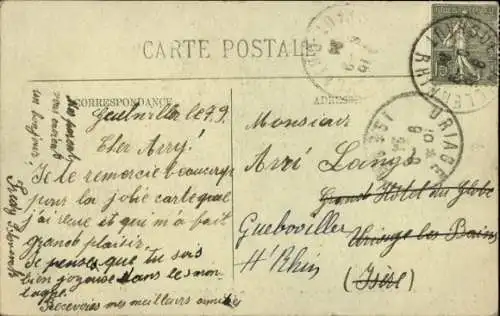 CARTE POSTALE
CORRESPONDANCE
ADRESSE
Guebwiller le 7.9.
Cher Arri!
Je te remercie beaucoup
pour la jolie carte que
j'ai reçue et qui m'a fait
grande plaisir.
Je penses que tu sois
bien joyeuse dans les mon
tagne.
Receveries mes meilleurs amitiés
Mes parents
un bonjour
Monsieur
Arri Lang
Grand Hôtel du Globe
Uriage les Bains
(Isère)
Guebviller
Ht Rhin
URIAGE
15